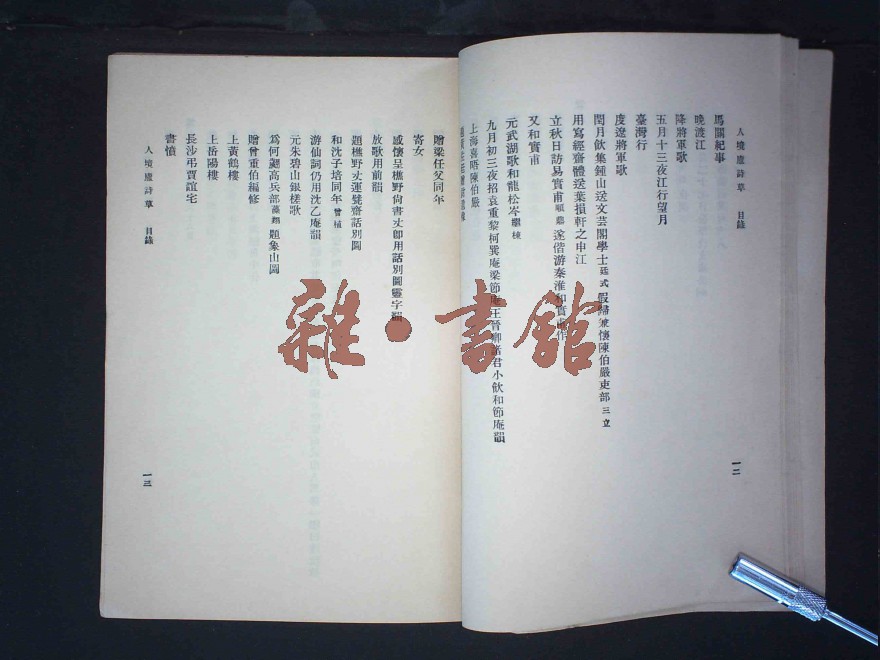 人境廬詩草　目錄
馬關紀事
晚渡江
降將軍歌
五月十三夜江行望月
臺灣行
度遼將軍歌
閏月飲集鍾山送文芸閣學士廷式假歸兼懷陳伯嚴吏部三立
用寫經齋體送葉損軒之申江
立秋日訪易實甫順鼎遂偕游秦淮和實甫作
又和實甫
元武湖歌和龍松岑繼棟
九月初三夜招袁重黎柯巽庵梁節庵王晉卿諸君小飲和節庵韻
上海喜晤陳伯嚴
題黃佐廷贈尉遺像
一二
贈梁任父同年
寄女
感懷呈樵野尙書丈卽用話別圖靈字韻
放歌用前韻
題樵野丈運甓齋話別圖
和沈子培同年曾植
游仙詞仍用沈乙庵韻
元朱碧山銀槎歌
爲何翽高兵部藻翔題象山圖
贈曾重伯編修
上黃鶴樓
上岳陽樓
長沙弔賈誼宅
書憤
人境廬詩草　目錄
一三
雜·書館